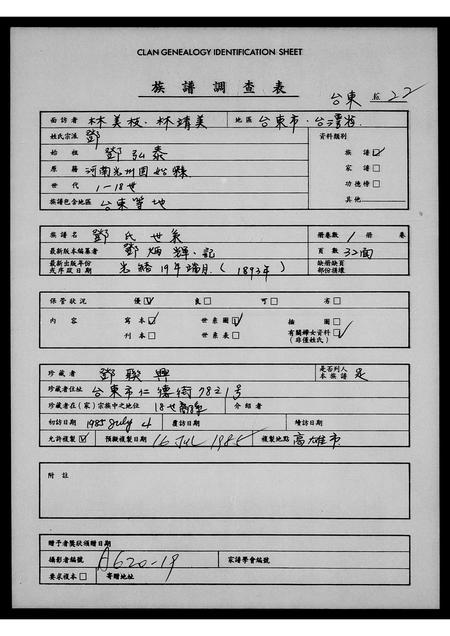 CLAN GENEALOGY IDENTIFICATION SHEET
族譜調查表
台東 22
面訪者 林美枝、林靖美 地區 台東市、台灣省
姓氏宗派 鄧 資料類別
始祖 鄧弘泰 族譜☑
原籍 河南光州固始縣 家譜□
世代 1—18世 功德榜□
族譜包含地區 台東等地 其他
族譜名 鄧氏世系 冊卷數 1 冊 卷
最新版本編纂者 鄧炳輝、記 頁數 32面
最新出版年份或序跋日期 光緒19年端月(1893年) 缺冊缺頁部份損壞
保管狀況 優☑ 良□ 可□ 劣□
內容 寫本☑ 世系圖☑ 插圖□
刊本□ 世系表□ 有關婦女資料(非僅姓氏)☑
珍藏者 鄧聯興 是否列入本族譜 是
珍藏者住址 台東市仁德街78之1號
珍藏者在(家)宗族中之地位 18世 介紹者
初訪日期 1985 July 4 覆訪日期 續訪日期
允許複製☑ 預擬複製日期 16 Jul 1985 複製地點 高雄市
附註
贈予者獎狀頒贈日期
攝影者編號 A620-19 家譜學會編號
要求複本□ 寄贈地址